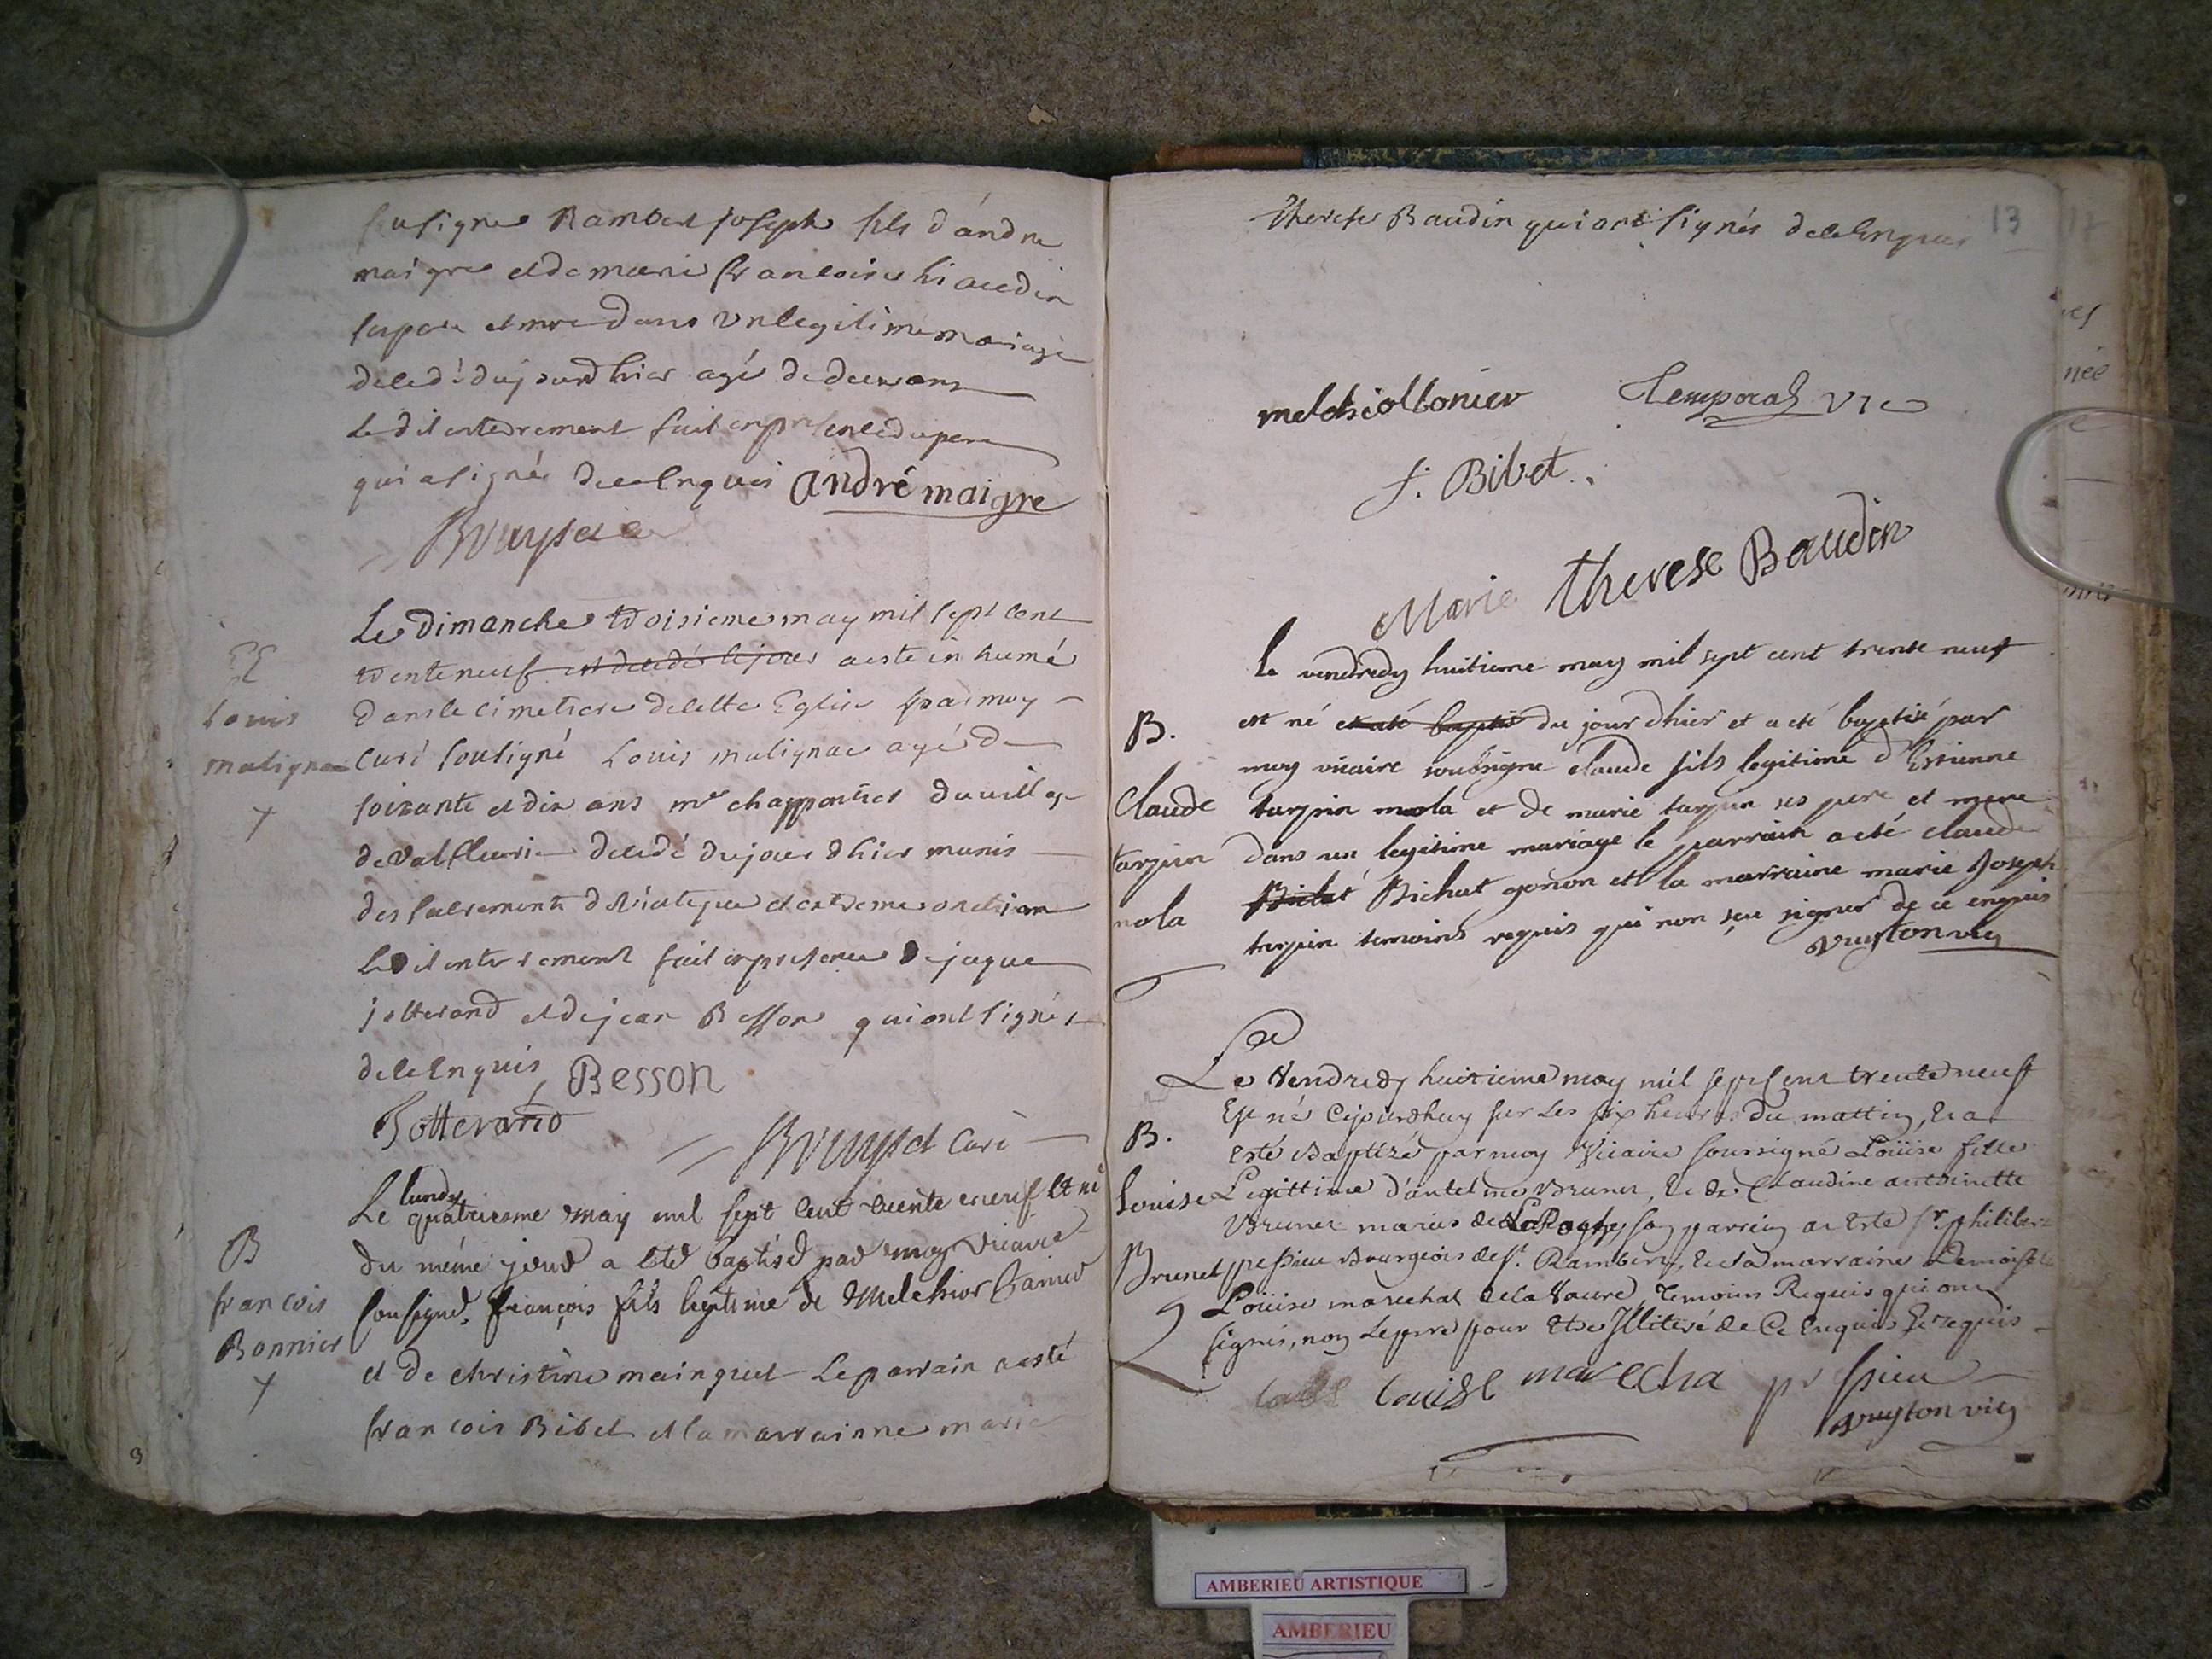 susigne Rambert joseph fils d'andre
maigre et de marie francoise
pere et mere dans un legitime mariage
decedé du jourdhier agé de deux ans
Le dit enterrement fait en presence du pere
qui a signé de ce Enquis andré maigre
Bruyset
Le dimanche troisieme may mil sept cent
trente neuf est decedé le jour a esté inhumé
E
dans le cimetiere de cette Eglise par moy
Louis
curé soussigné Louis malignac agé de
malignac
soixante et dix ans me chappentier du village
de valfleurie decedé du jour dhier munis
des sacrements de viatique et extreme onction
Le dit enterrement fait en presence de jaque
jotterand et de jean Besson qui ont signé
de ce Enquis Besson
Jotterand
Bruyset curé
Le lundy quatrieme may mil sept cent trente neuf Et né
B
du même jour a eté baptisé par moy vicaire
francois
sousigné, françois fils legitime de Melchior Bonnier
Bonnier
et de christine mainguet Le parrain a esté
francois Bibet et la marrainne marie
9
13
therese Baudin qui ont signés de ce Enquis
melchiol bonier Temporal vic
f. Bibet
Marie therese Baudin
le vendredy huitieme may mil sept cent trente neuf
B.
est né et a eté baptisé du jour dhier et a eté baptisé par
moy vicaire soubsigne claude fils legitime d'Estienne
Claude
turpin mola et de marie turpin ses pere et mere
turpin
dans un legitime mariage le parrain a eté claude
mola
Bichat Bichat gonon et la marraine marie Joseph
turpin temoins requis qui non sçu signer de ce enquis
Vuyton vic
Le Vendredy huitieme may mil sept cent trente neuf
Est né Cejourdhuy sur Les six heures du mattin, Et a
B.
esté Baptizé par moy Vicaire soussigné Loüise fille
Louise
Legittime d'antelme Brunet, Et de Claudine antoinette
Brunet mariés de son parrein a Esté sr. philibert
Brunet
pessieu Bourgeois de st. Rambert, Et sa marraine Demoiselle
Loüise marechal de la Vavre, Temoins Requis qui ont
signés, non Le pere pour Etre Illiteré de Ce Enquis Et requis
louise marecha pessieu
Vuyton vic
AMBERIEU ARTISTIQUE
AMBERIEU